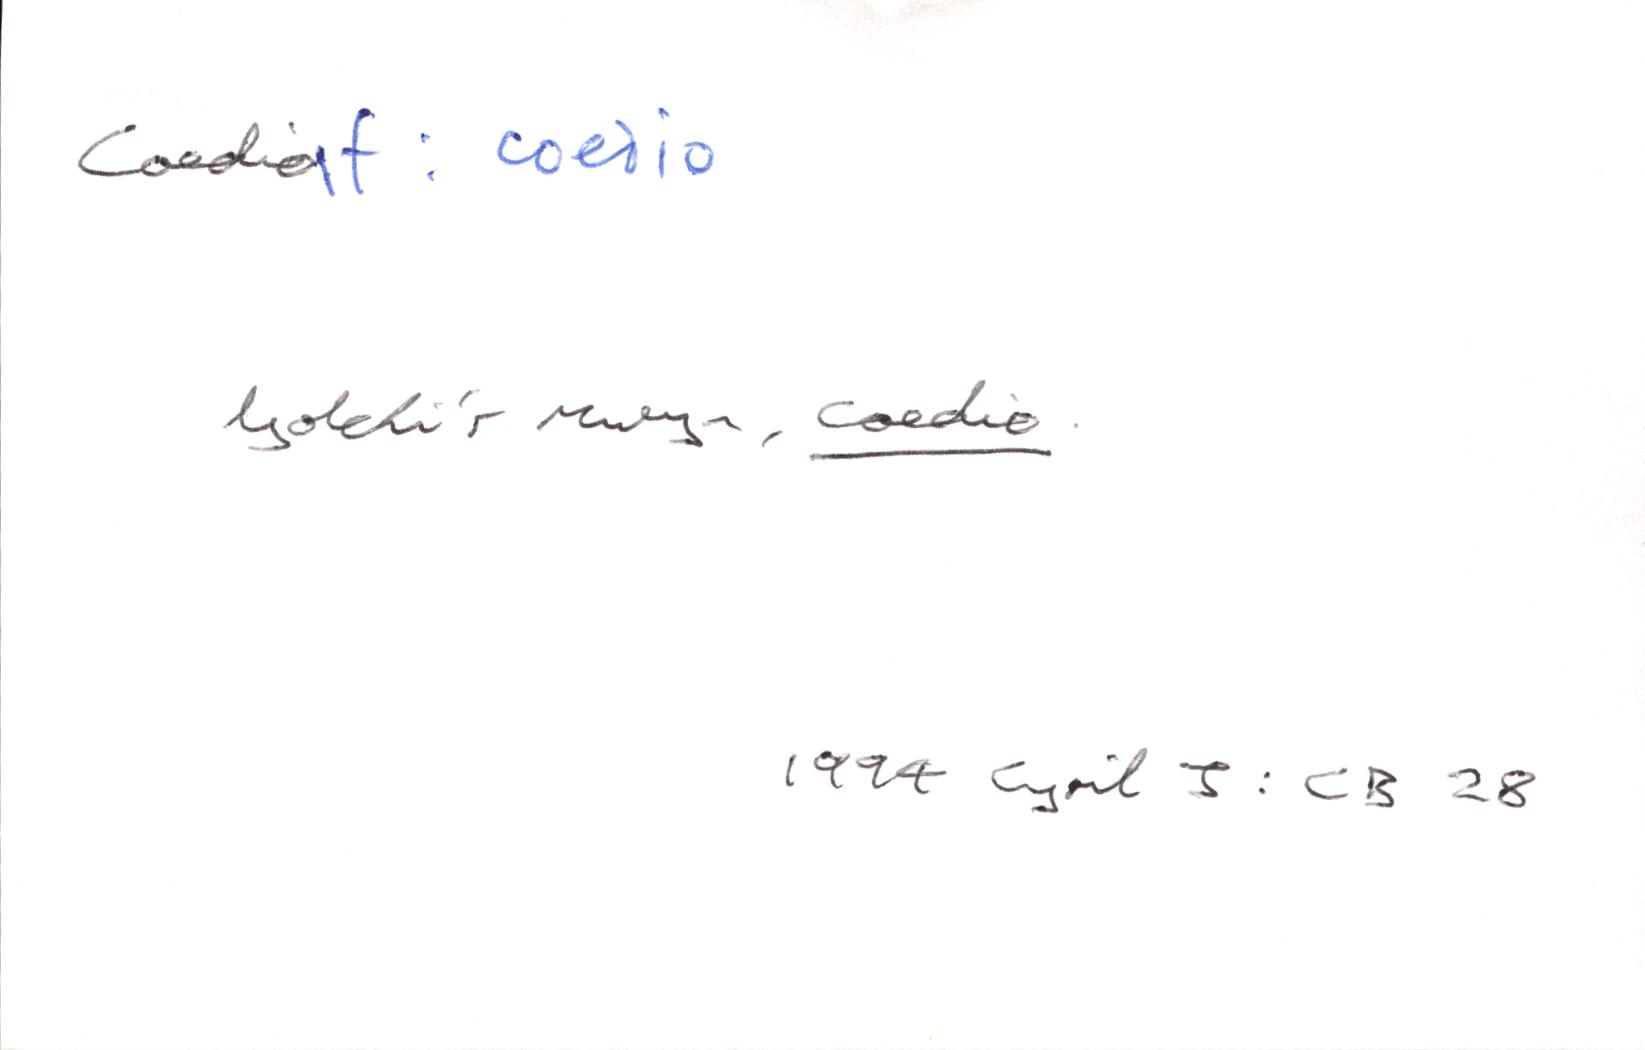 Coediaf : coedio
golchi'r mwyn, coedio.
1994 Cyril J : CB 28